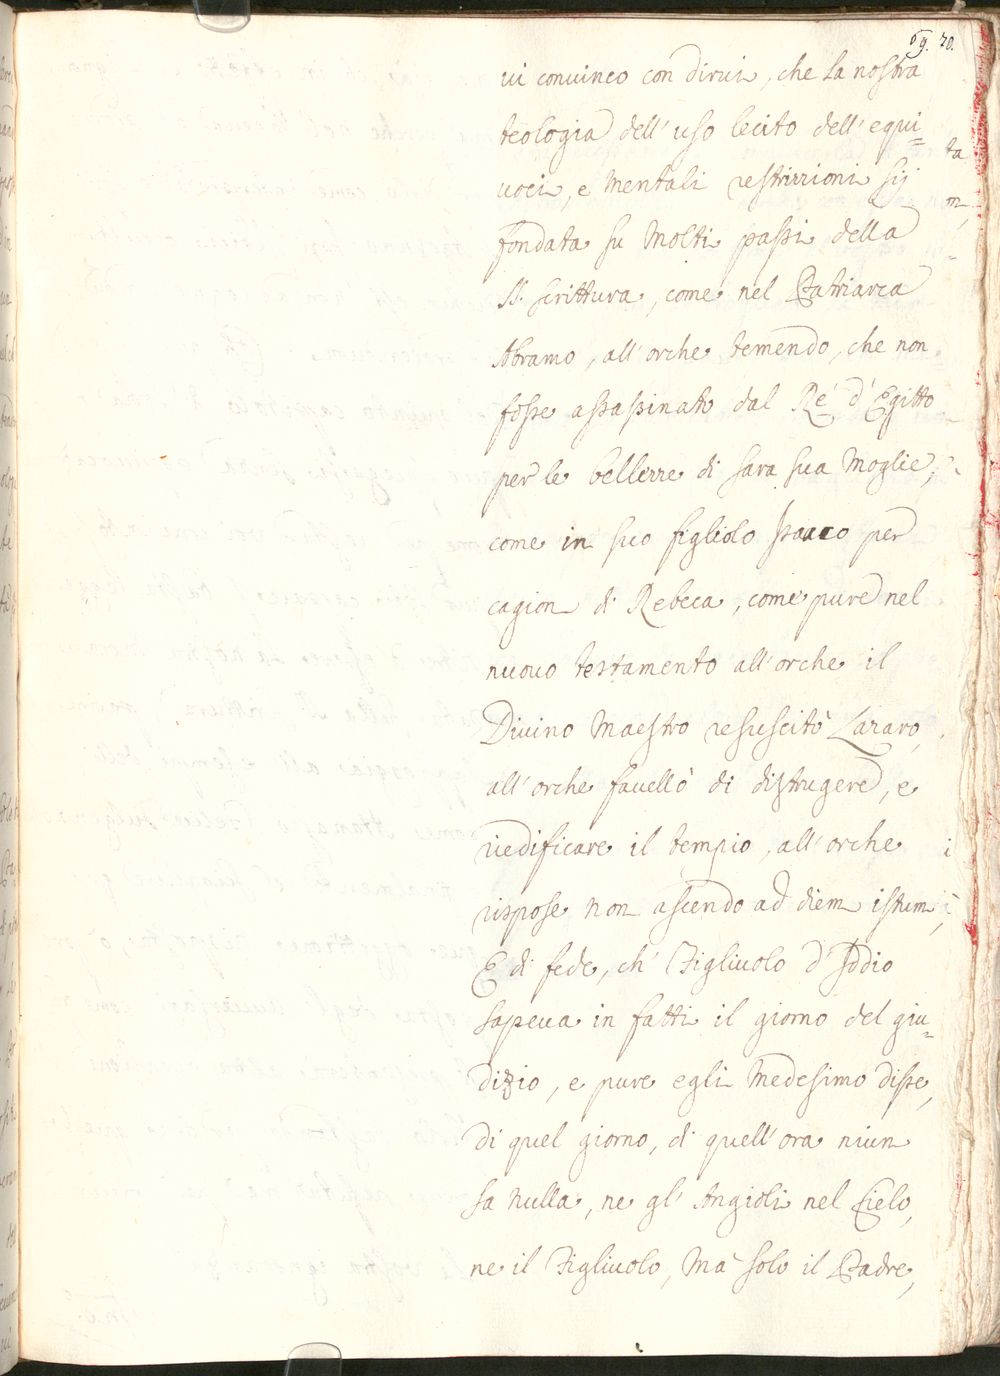 69. 70.
vi convinco con dirvi, che la nostra
teologia dell' uso lecito dell' equi=
voci, e mentali restrizzioni sij
fondata su molti passi della
S. Scrittura, come nel Patriarca
Abramo, all'orche temendo, che non
fosse assassinato dal Rè d'Egitto
per le bellezze di Sara sua Moglie,
come in suo figliolo Isaaco per
cagion di Rebeca, come pure nel
nuovo testamento all'orche il
Divino Maestro resuscitò Lazaro,
all'orche favellò di distrugere, e
riedificare il tempio, all'orche
rispose non ascendo ad diem istum,
E di fede, ch' Figliuolo d'Iddio
sapeva in fatti il giorno del giu=
dizio, e pure egli medesimo disse,
di quel giorno, di quell'ora niun
sa nulla, ne gl' Angioli nel Cielo,
ne il Figliuolo, mà solo il Padre,